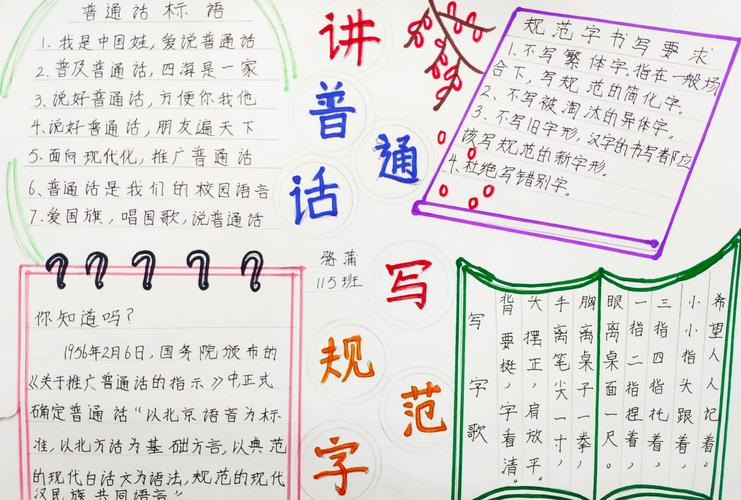 普通话标语
1、我是中国娃，爱说普通话
2、普及普通话，四海是一家
3、说好普通话，方便你我他
4、说好普通话，朋友遍天下
5、面向现代化，推广普通话
6、普通话是我们的校园语言
7、爱国旗，唱国歌，说普通话
讲
普
通
话
规范字书写要求
1、不写繁体字，指在一般场
合下，写规范的简化字。
2、不写被淘汰的异体字。
3、不写旧字形，汉字的书写都应
该写规范的新字形。
4、杜绝写错别字。
骆蒲
115班
写
规
范
字
你知道吗？
1956年2月6日，国务院颁布的
《关于推广普通话的指示》中，正式
确定普通话“以北京语音为标
准，以北方话为基础方言，以典范
的现代白话文为语法，规范的现代
汉民族共同语言”
写字歌
背要挺，字看清。
头摆正，肩放平。
手离笔尖一寸，
胸离桌子一拳，
眼离桌面一尺。
一指二指捏着，
三指四指托着，
小小指头跟着，
希望人人记着。